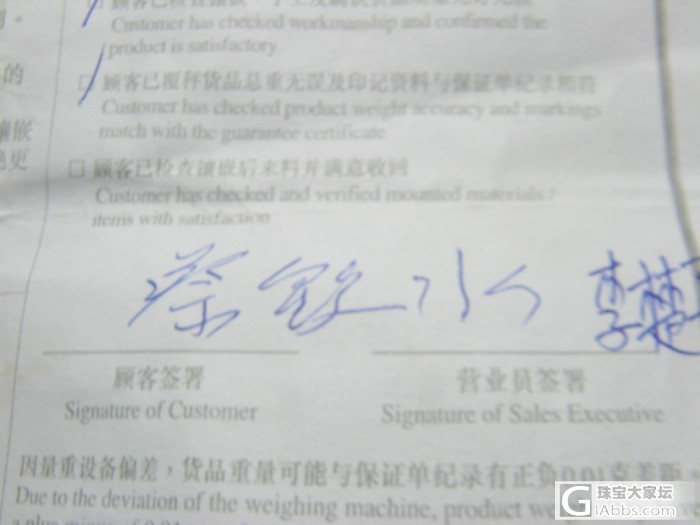 Customer has checked workmanship and confirmed the
product is satisfactory
的
□ 顾客已覆秤货品总重无误及印记资料与保证单纪录相符
Customer has checked product weight accuracy and markings
match with the guarantee certificate
嵌
更
□ 顾客已检查镶嵌后来料并满意收回
Customer has checked and verified mounted materials /
items with satisfaction
李楚
顾客签署
营业员签署
Signature of Customer
Signature of Sales Executive
因量重设备偏差，货品重量可能与保证单纪录有正负0.01克差距
Due to the deviation of the weighing machine, product we
珠宝大家坛
GIAbbs.com